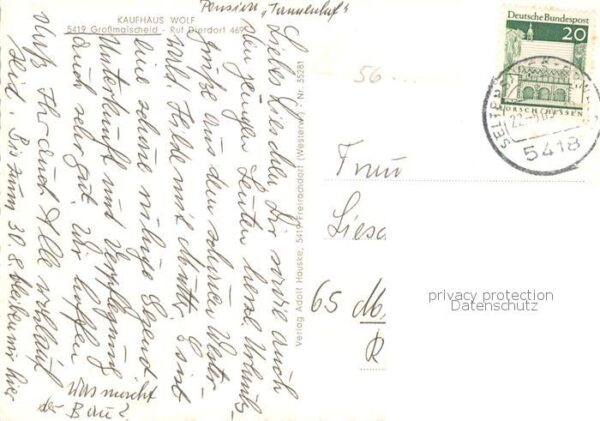 Pension „Tannenhof"
KAUFHAUS WOLF
5419 Großmaischeid - Ruf Dierdort 469
Liebes Lieschen Dir sowie auch
den jungen Leuten herzl. Urlaubs-
grüße aus dem schönen Wester-
wald. Habe mit Mutti. Es ist
eine schöne ruhige Gegend
Unterkunft und Verpflegung
auch sehr gut. Wir hoffen
daß Ihr auch Alle wohlauf
seid. Bis zum 30.8. bleiben wir hier
Was macht
der Bau?
Verlag Adolf Hauske, 5419 Freirachdorf (Westerw.) · Nr. 35281
56
Deutsche Bundespost
20
LORSCH/HESSEN
5418
Frau
Liesc
65 M
R
privacy protection
Datenschutz